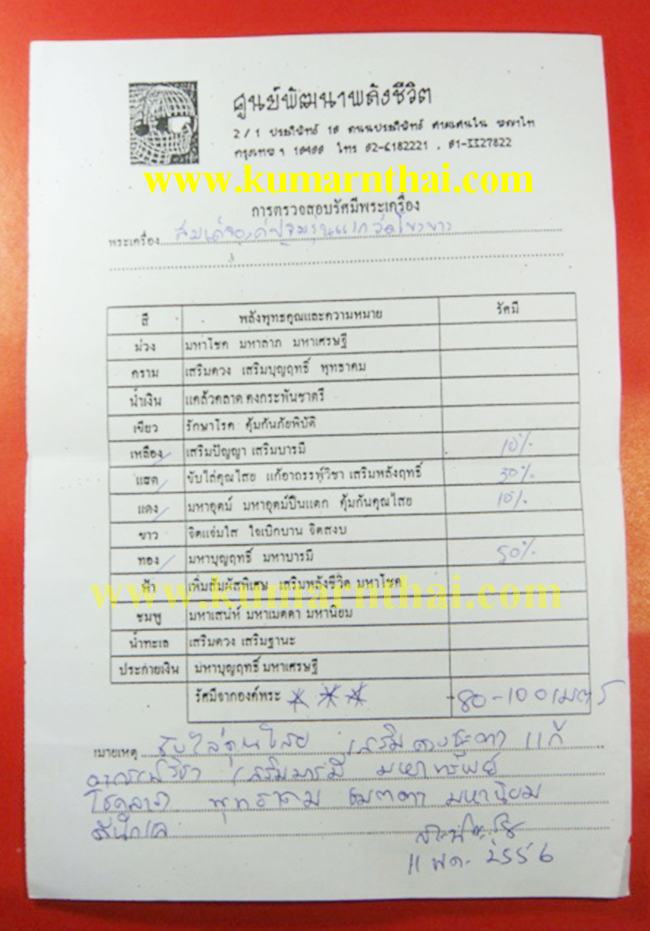 ศูนย์พัฒนาพลังชีวิต
2/1 ประดิพัทธ์ 10 ถนนประดิพัทธ์ สามเสนใน พญาไท
กรุงเทพฯ 10400 โทร 02-6182221 , 01-1127822
www.kumarnthai.com
การตรวจสอบรัศมีพระเครื่อง
พระเครื่อง สมเด็จองค์ปฐมรุ่นแรก วัดเขาวง
สี พลังพุทธคุณและความหมาย รัศมี
ม่วง มหาโชค มหาลาภ มหาเศรษฐี
คราม เสริมดวง เสริมบุญฤทธิ์ พุทธาคม
น้ำเงิน แคล้วคลาด คงกระพันชาตรี
เขียว รักษาโรค คุ้มกันภัยพิบัติ
เหลือง เสริมปัญญา เสริมบารมี 10%
แสด ขับไล่คุณไสย แก้อาถรรพ์วิชา เสริมพลังฤทธิ์ 30%
แดง มหาอุตม์ มหาอุตม์ปืนแตก คุ้มกันคุณไสย 10%
ขาว จิตแจ่มใส ใจเบิกบาน จิตสงบ
ทอง มหาบุญฤทธิ์ มหาบารมี 50%
ฟ้า เพิ่มสัมผัสพิเศษ เสริมพลังชีวิต มหาโชค
www.kumarnthai.com
ชมพู มหาเสน่ห์ มหาเมตตา มหานิยม
น้ำทะเล เสริมดวง เสริมฐานะ
ประกายเงิน มหาบุญฤทธิ์ มหาเศรษฐี
รัศมีจากองค์พระ 80-100เมตร
หมายเหตุ ขับไล่คุณไสย เสริมดวงชะตา แก้
อาถรรพ์วิชา เสริมบารมี มหาทรัพย์
โชคลาภ พุทธาคม เมตตา มหานิยม
11 พค. 2556